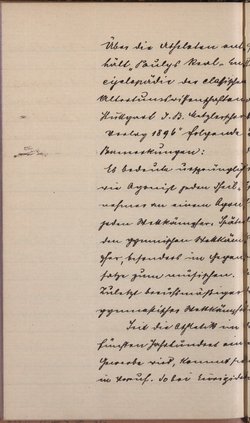 Über die Athleten ent-
hält "Paulys Real-En-
cyclopädie der classischen
Altertumswissenschaften
Stuttgart J. B. Metzlerscher
Verlag 1896" folgende
Bemerkungen:
Es bedeute ursprünglich
wie Agonist jeden Theil-
nehmer an einem Agon
jeden Wettkämpfer. Später
den gymnischen Wettkäm-
fer, besonders im Gegen-
satze zum musischen.
Zuletzt berufsmäßiger
gymnastischer Wettkämpfer
Seit die Athletik im
fünften Jahrhundert ein
Gewerbe wird, kommt sie
in Verruf. So bei Euripides